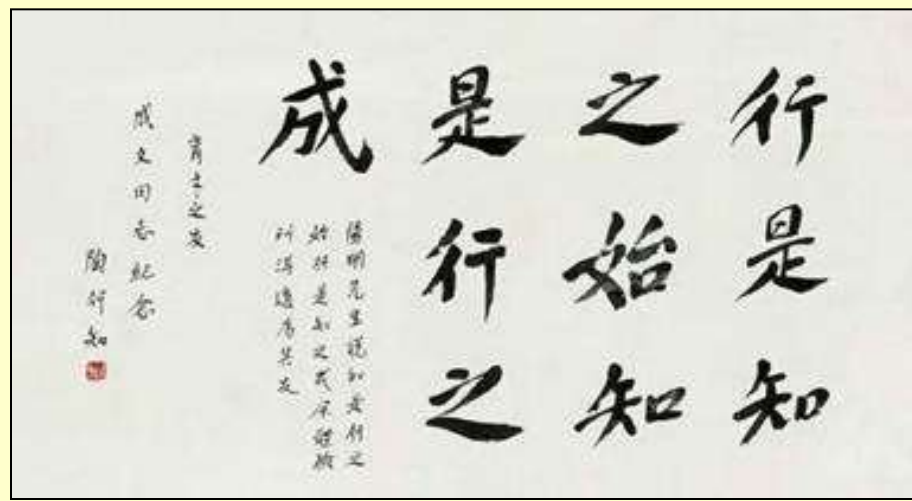 行是知
之始知
是行之
成
陽明先生說知是行之
始行是知之成余體驗
所得適為其反
育才之友
成文同志紀念
陶行知